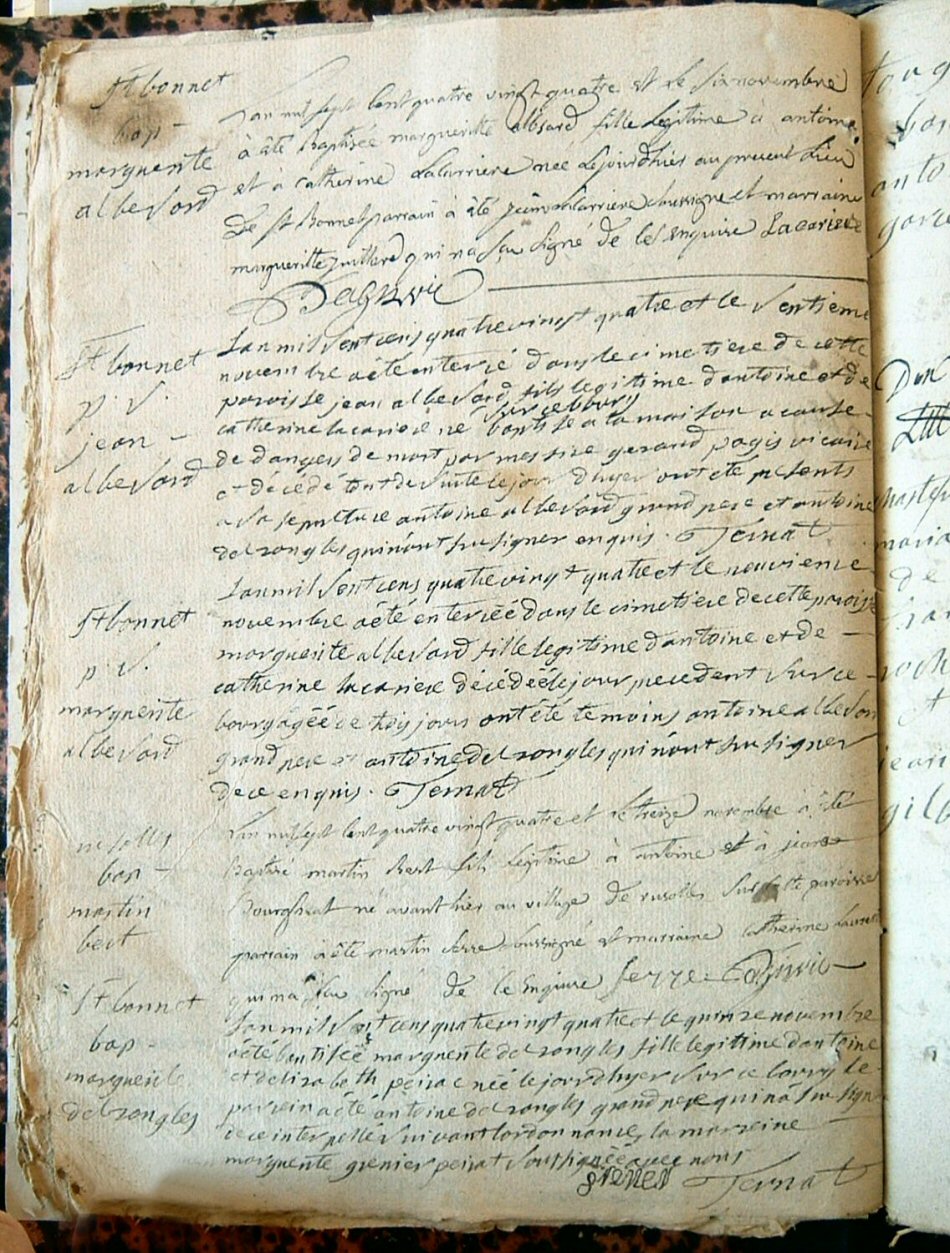 St bonnet
bap -
marguerite
albeSard
Lan mil sept cent quatre vingt quatre et le six novembre
à été Baptisée margueritte albsard fille legitime à antoine
et à Catherine Lacarriere née Lejourdhier au present Lieu
De St Bonnet parrain à été Lacarriere soussigné et marraine
margueritte juillard qui na Su signé de ce Enquise Lacariere
Pagis vic
St bonnet
p. s.
jean -
albeSard
Lan mil Sept cens quatre vingt quatre et le Septieme
novembre a été enterré dans le cimetiere de cette
paroisse jean albeSard fils legitime dantoine et de
catherine lacariere né Sur ce bourg baptisé a la maison a cause
de dangers de mort par messire gerard pagis vicaire
et décédé tout de Suite le jour dhyer ont été presents
a sa sepulture antoine albeSard grand pere et antoine
delzongles qui nont Su signer enquis. Ternat
St bonnet
p S.
marguerite
albeSard
Lan mil Sept cens quatre vingt quatre et le neuvieme
novembre a été enterrée dans le cimetiere de cette paroisse
marguerite albeSard fille legitime dantoine et de
catherine lacariere décédée le jour precedent Sur ce
bourg agée de trois jours ont été temoins antoine albeSard
grand pere et antoine delzongles qui nont Su signer
de ce enquis. Ternat
ruSolles
bap -
martin
bert
Lan mil sept cent quatre vingt quatre et le treize novembre à été
Baptisé martin Bert fils legitime à antoine et à
né avant hier au village de rusolles Sur cette paroisse
parrain à été martin Serre soussigné et marraine Catherine
qui na Su signé de ce Enquise Serre Pagis vic
St bonnet
bap -
marguerite
delzongles
Lan mil Sept cens quatre vingt quatre et le quinze novembre
a été batisée marguerite delzongles fille legitime dantoine
et delizabeth peirac née le jour dhyer Sur ce bourg le
parrein a été antoine delzongles grand pere qui na Su signer
de ce interpellé Suivant lordonnance, la marreine
marguerite grenier peirat Soussignée avec nous
grenier Ternat